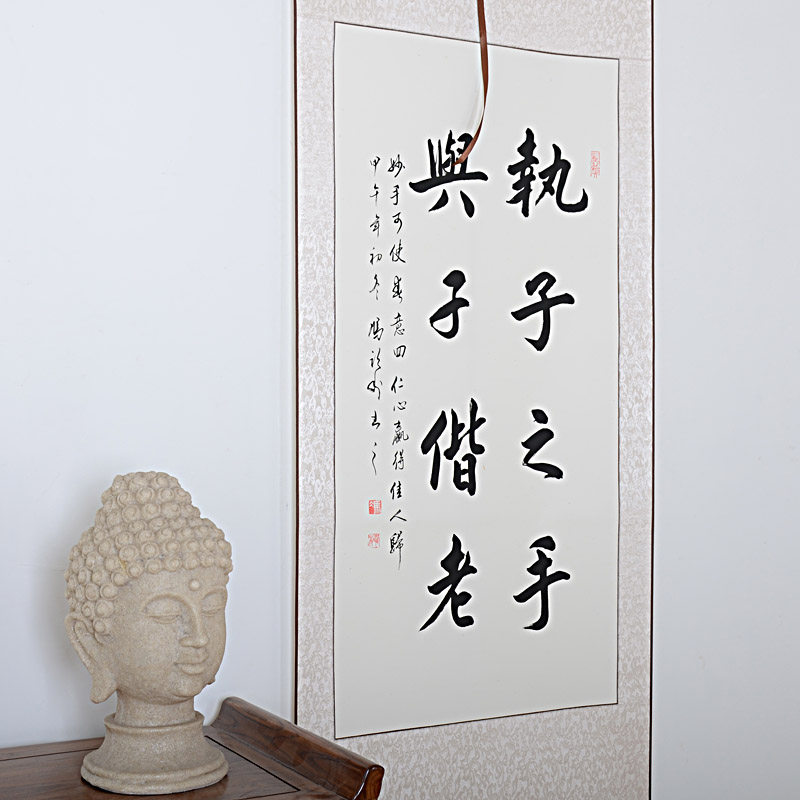 執子之手
與子偕老
妙手可使春意回仁心贏得佳人歸
甲午年初冬馮